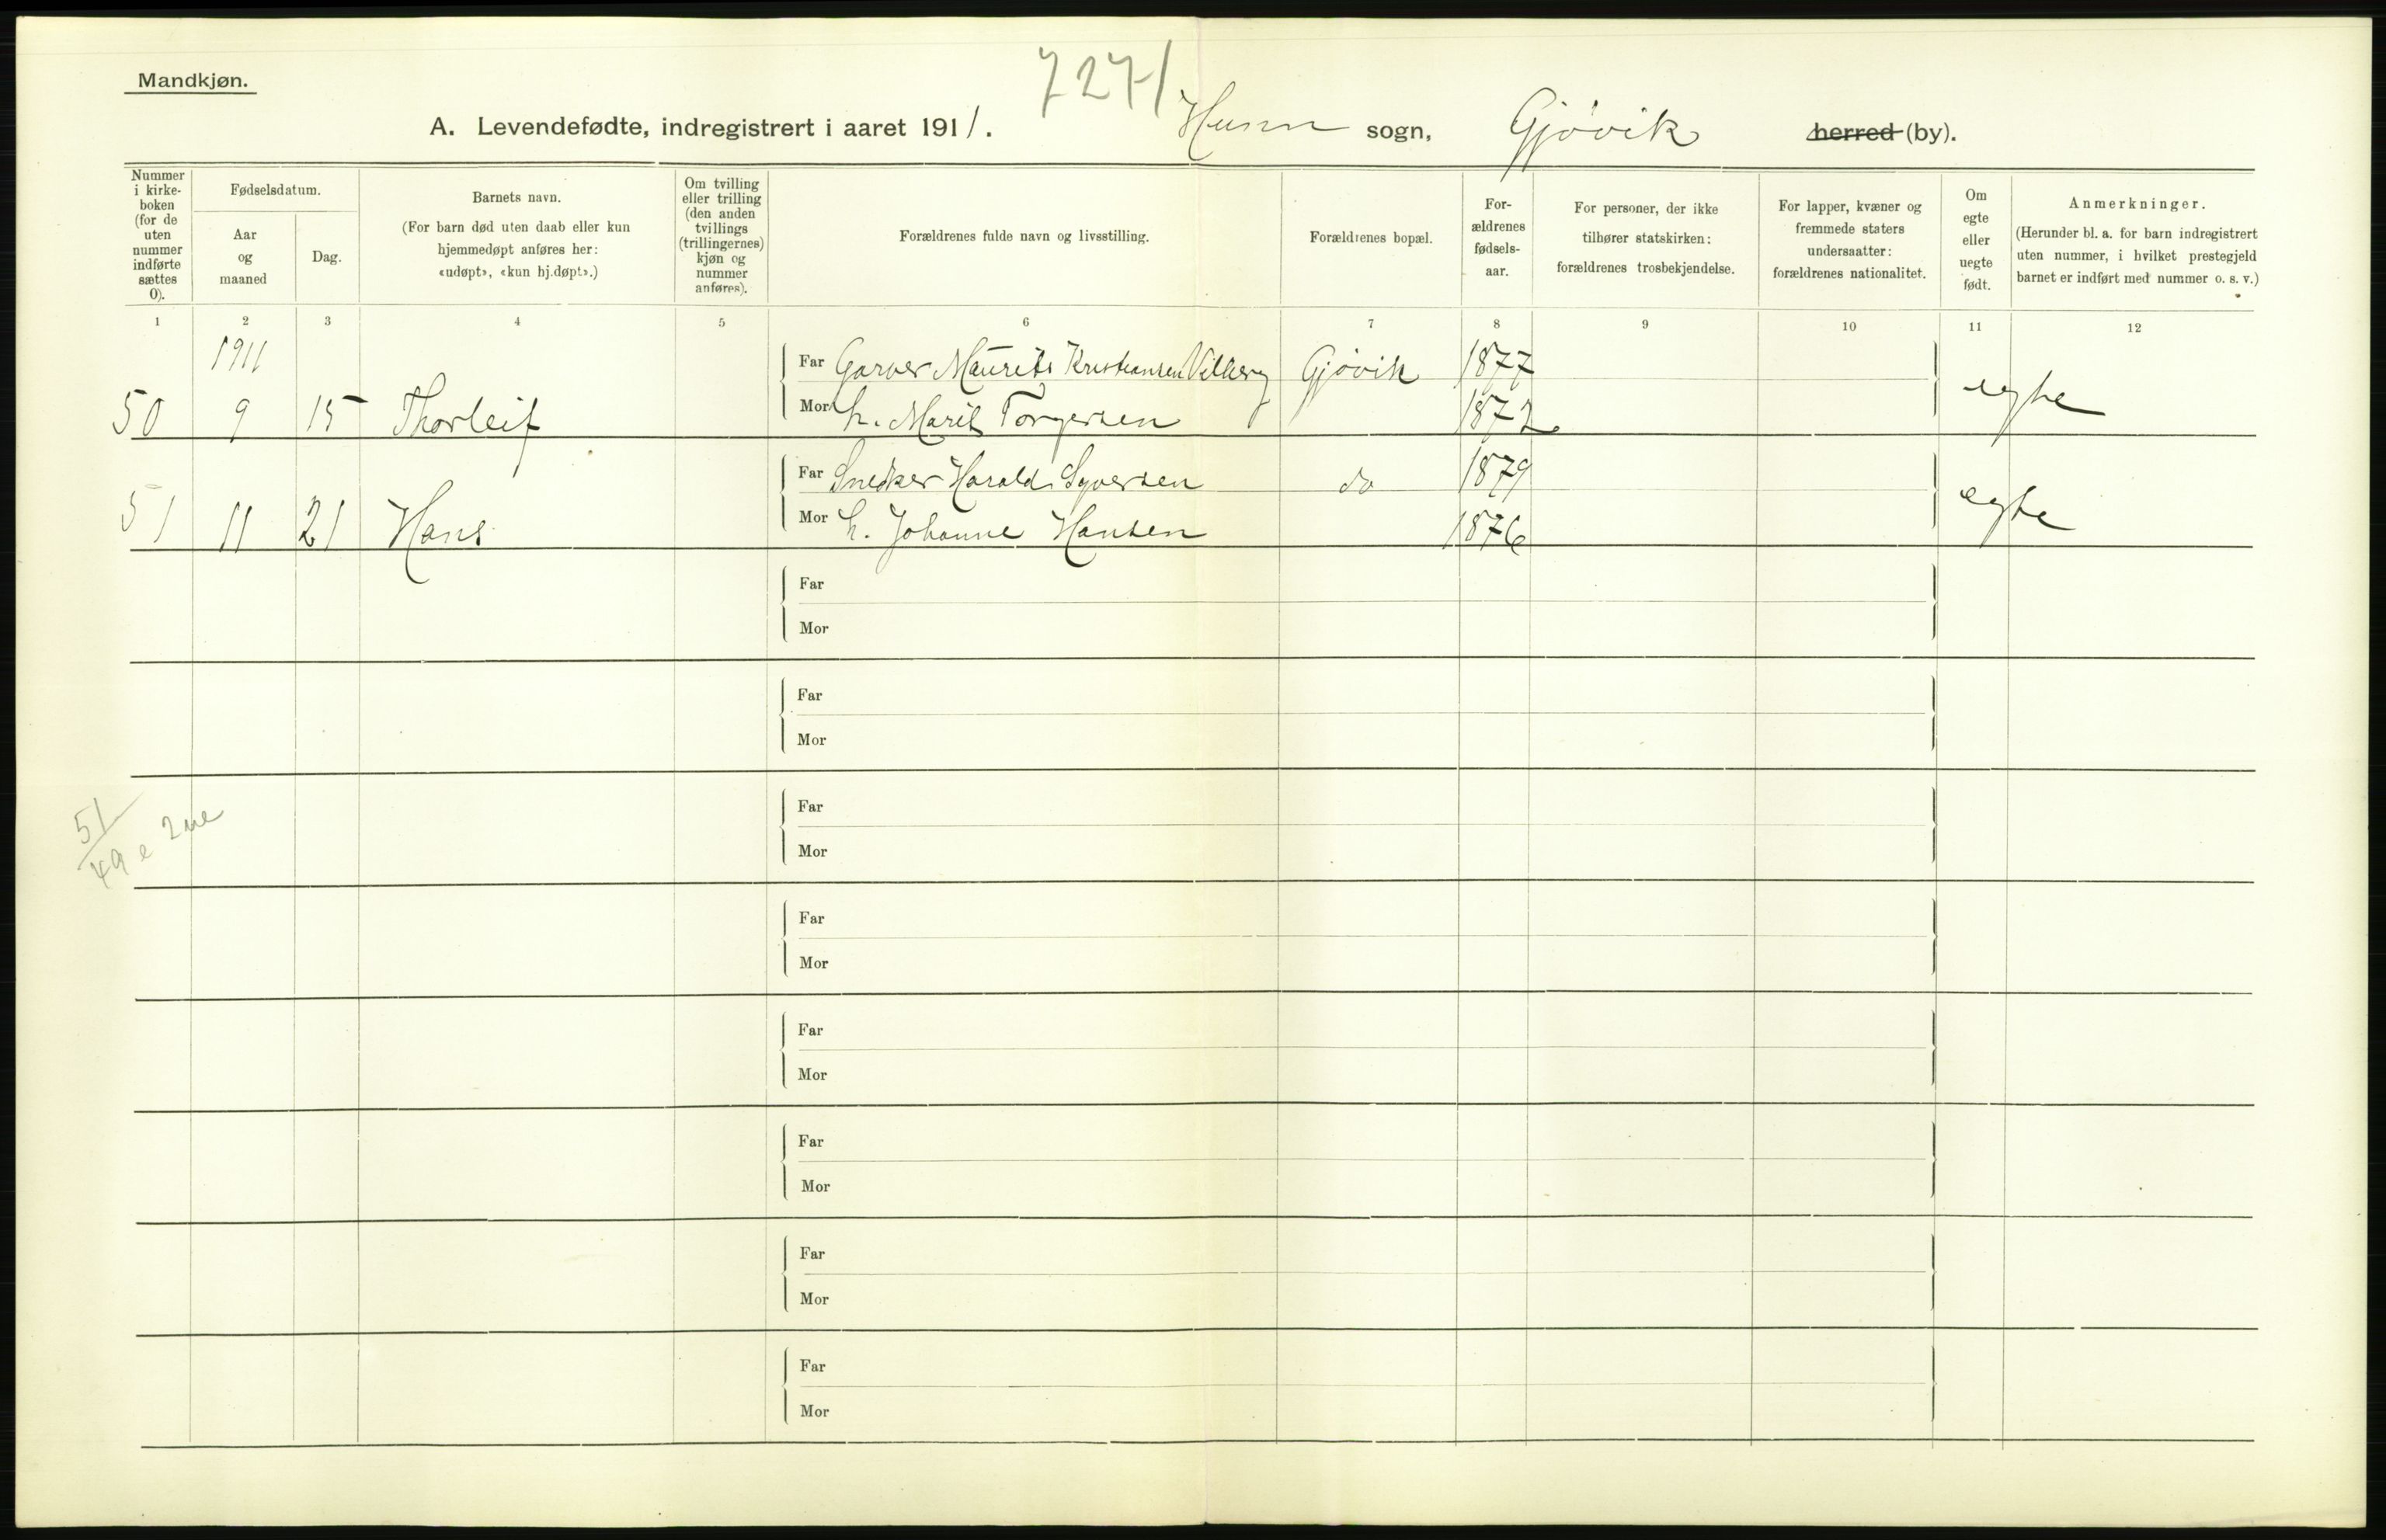 Mandkjøn.
7271
A. Levendefødte, indregistrert i aaret 1911. Hunn sogn, Gjövik herred (by).
Nummer i kirke-boken (for de uten nummer indførte sættes 0).
Fødselsdatum.
Aar og maaned
Dag.
Barnets navn.
(For barn død uten daab eller kun hjemmedøpt anføres her: «udøpt», «kun hj.døpt».)
Om tvilling eller trilling (den anden tvillings (trillingernes) kjøn og nummer anføres).
Forældrenes fulde navn og livsstilling.
Forældrenes bopæl.
For-ældrenes fødsels-aar.
For personer, der ikke tilhører statskirken: forældrenes trosbekjendelse.
For lapper, kvæner og fremmede staters undersaatter: forældrenes nationalitet.
Om egte eller uegte født.
Anmerkninger.
(Herunder bl. a. for barn indregistrert uten nummer, i hvilket prestegjeld barnet er indført med nummer o. s. v.)
1 2 3 4 5 6 7 8 9 10 11 12
1911
Far Garver Maurits Kristiansen Vilberg Gjövik 1877
50 9 15 Thorleif Mor h. Marit Torgersen 1872 egte
Far Snedker Harald Syversen do 1879
51 11 21 Hans Mor h. Johanne Hansen 1876 egte
Far
Mor
Far
Mor
51
49 e 2 ue
Far
Mor
Far
Mor
Far
Mor
Far
Mor
Far
Mor
Far
Mor